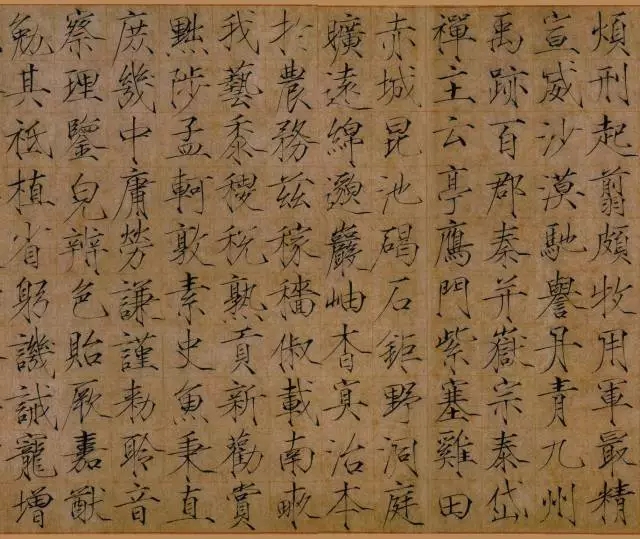 煩刑起翦頗牧用軍最精
宣威沙漠馳譽丹青九州
禹跡百郡秦并嶽宗泰岱
禪主云亭鷹門紫塞雞田
赤城昆池碣石鉅野洞庭
曠遠綿邈巖岫杳冥治本
於農務茲稼穡俶載南畝
我藝黍稷稅熟貢新勸賞
黜陟孟軻敦素史魚秉直
庶幾中庸勞謙謹勑聆音
察理鑒皃辨色貽厥嘉猷
勉其祗植省躬譏誡寵增